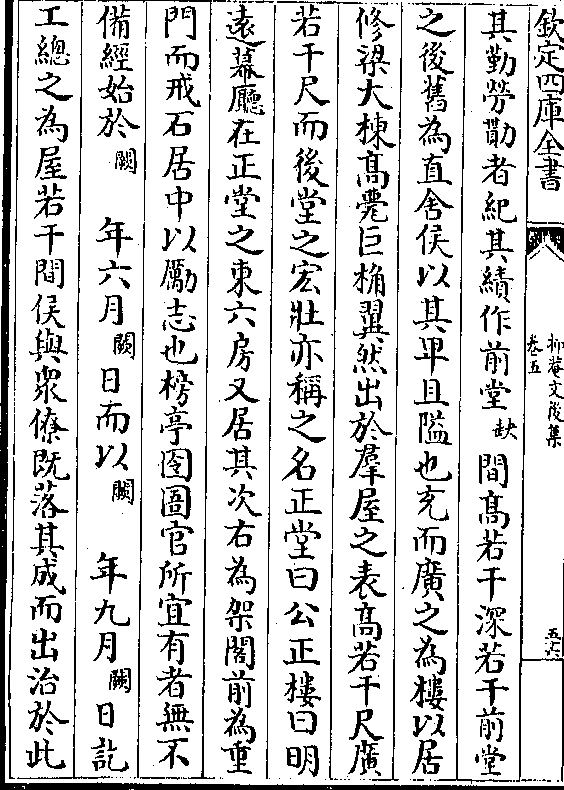 欽定四庫全書
抑菴文後集
卷五
五六
其勤勞勩者紀其績作前堂缺間髙若干深若干前堂
之後舊為直舍侯以其卑且隘也充而廣之為樓以居
修梁大棟髙甍巨桷翼然出於羣屋之表髙若干尺廣
若干尺而後堂之宏壯亦稱之名正堂曰公正樓曰明
遠幕廳在正堂之東六房又居其次右為架閣前為重
門而戒石居中以勵志也榜亭囹圄官所宜有者無不
備經始於闕年六月闕日而以闕年九月闕日訖
工總之為屋若干間侯與衆僚既落其成而出治於此